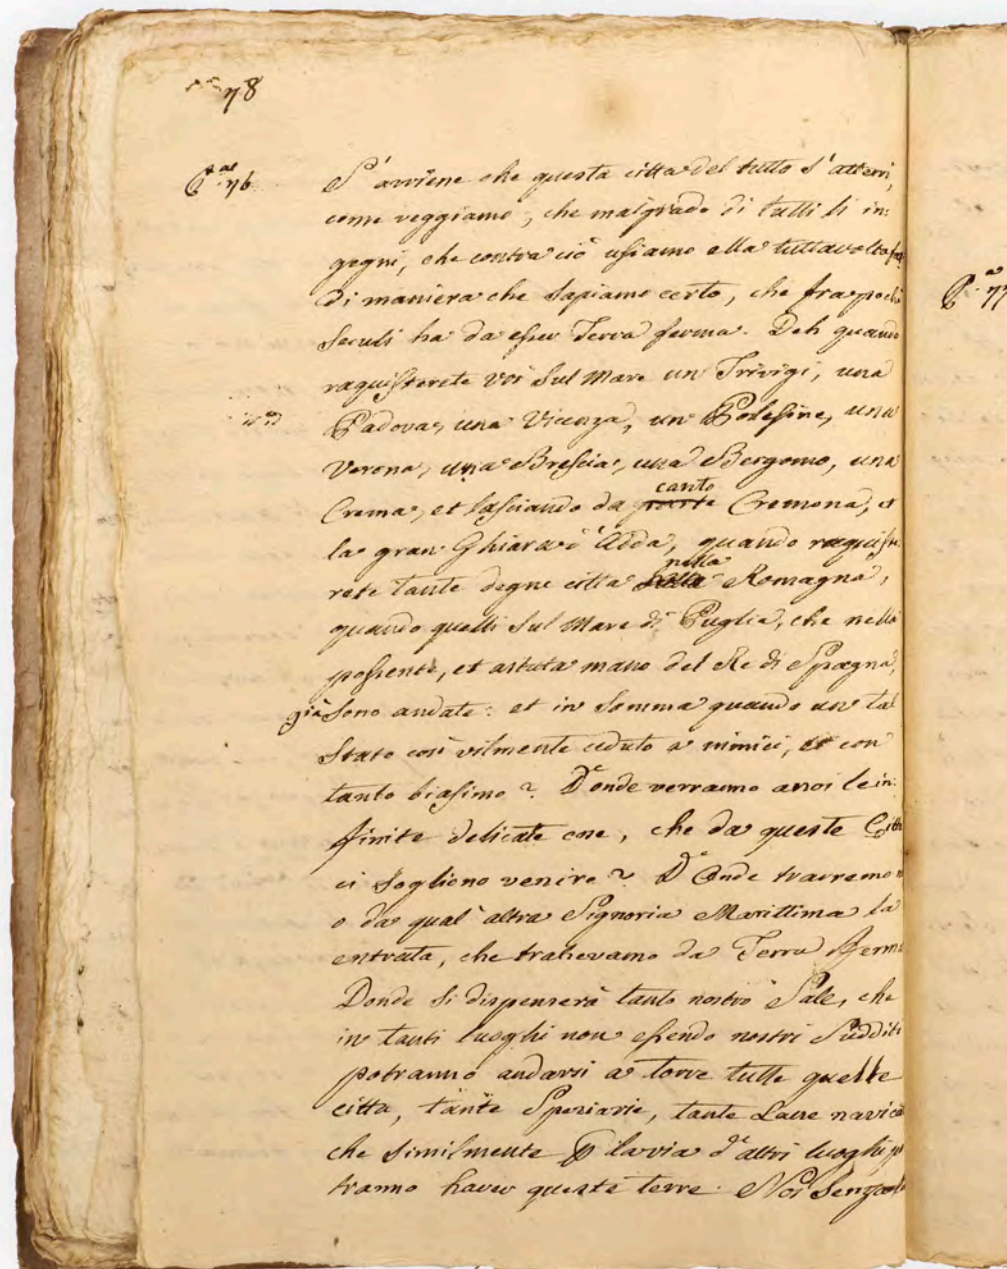 78
C.al 76.
S' avviene che questa citta del tutto s' atterri,
come veggiamo, che malgrado di tutti li in:
gegni, che contra ciò usiamo ella tuttavolta fa
di maniera che sapiamo certo, che fra pochi
seculi ha da esser Terra ferma. Deh quando
raquisterete voi sul Mare un Trivigi, una
Padova, una Vicenza, un Polesine, una
Verona, una Brescia, una Bergomo, una
Crema, et lasciando da canto Cremona, et
la gran Ghiara d' Adda, quando raquiste
rete tante degne citta nella Romagna,
quando quelli sul Mare di Puglia, che nella
possente, et astuta mano del Re di Spagna,
già sono andate: et in somma quando un tal
Stato così vilmente ceduto a nimici, et con
tanto biasimo? D'onde verranno a noi le in:
finite delicate cose, che da queste Citta
ci sogliono venire? D'Onde trarremo
o da qual' altra Signoria Marittima la
entrata, che trahevamo da Terra Ferma
Donde si dispenserà tanto nostro Sale, che
in tanti luoghi non essendo nostri Sudditi
potranno andarsi a torre tutte quelle
citta, tante Speziarie, tante Lane
che similmente p la via d' altri luoghi po
tranno haver queste terre. Noi senza
C.a 77